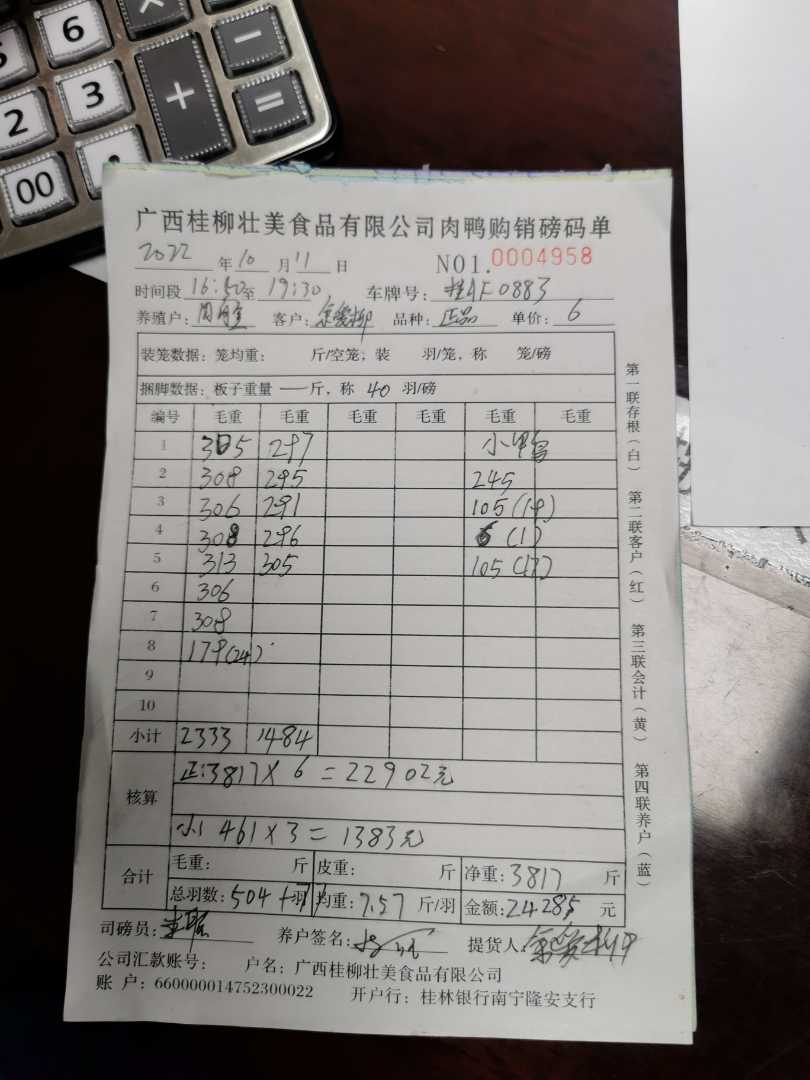 6
3
2
00
+
-
=
广西桂柳壮美食品有限公司肉鸭购销磅码单
2022年10月11日 NO1.0004958
时间段16:50至19:30 车牌号:桂AF0883
养殖户: 客户:余爱柳 品种:正品 单价:6
装笼数据:笼均重: 斤/空笼,装 羽/笼,称 笼/磅
捆脚数据:板子重量 — 斤,称 40 羽/磅
编号 毛重 毛重 毛重 毛重 毛重 毛重
1 305 297 小
2 308 295 245
3 306 291 105(19)
4 308 296 6(1)
5 313 305 105(17)
6 306
7 308
8 179(24)
9
10
小计 2333 1484
核算 正:3817×6=22902元
小 461×3=1383元
合计 毛重: 斤 皮重: 斤 净重:3817 斤
总羽数:504+71羽 均重:7.57斤/羽 金额:24285元
司磅员: 养户签名: 提货人:余爱柳
公司汇款账号: 户名:广西桂柳壮美食品有限公司
账 户:660000014752300022 开户行:桂林银行南宁隆安支行
第一联存根(白) 第二联客户(红) 第三联会计(黄) 第四联养户(蓝)